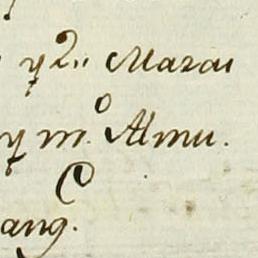 y 2„ Marai
y m.º Almu.
ang.